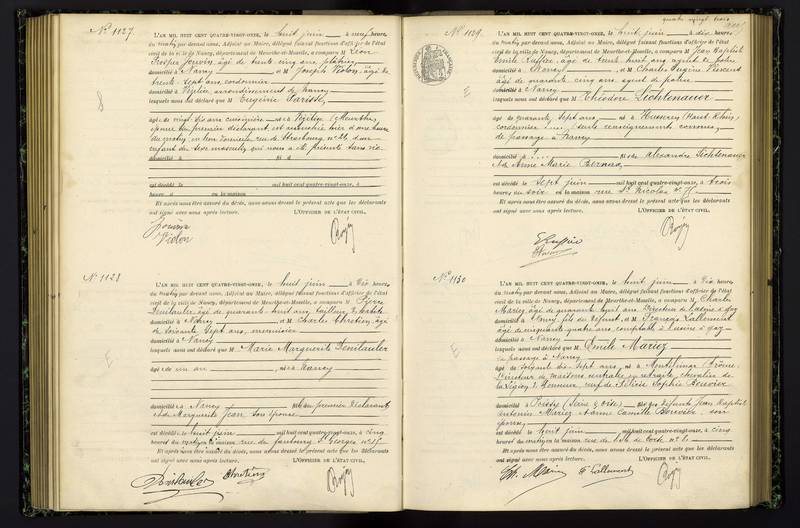 No 1127.
L'AN MIL HUIT CENT QUATRE-VINGT-ONZE, le huit juin à neuf heures
du matin par devant nous, Adjoint au Maire, délégué faisant fonctions d'officier de l'état
civil de la ville de Nancy, département de Meurthe-et-Moselle, a comparu M Léon
Prosper âgé de trente cinq ans, plâtrier
domicilié à Nancy et M Joseph Violon, âgé de
trente sept ans, cordonnier
domicilié à arrondissement de Nancy
lesquels nous ont déclaré que M Eugénie Pariset
âgé de vingt six ans née à (Meurthe),
épouse du premier déclarant, est accouchée hier d'une heure
du matin, en leur domicile rue de Strasbourg no 26 d'un
enfant du sexe masculin, qui nous a été présenté sans vie
domicilié à fils d
est décédé le mil huit cent quatre-vingt-onze, à
heures d en la maison
Et après nous être assuré du décès, nous avons dressé le présent acte que les déclarants
ont signé avec nous après lecture. L'OFFICIER DE L'ÉTAT CIVIL,
Violon
No 1128
L'AN MIL HUIT CENT QUATRE-VINGT-ONZE, le huit juin à dix heures
du matin par devant nous, Adjoint au Maire, délégué faisant fonctions d'officier de l'état
civil de la ville de Nancy, département de Meurthe-et-Moselle, a comparu M Pierre
âgé de quarante huit ans, tailleur
domicilié à Nancy et M Charles Chrétien, âgé
de soixante sept ans, menuisier
domicilié à Nancy
lesquels nous ont déclaré que M Marie Marguerite
âgé de un an né à Nancy
domicilié à Nancy fille du premier déclarant
et de Marguerite Jean, son épouse
est décédé le huit juin mil huit cent quatre-vingt-onze, à cinq
heures du matin en la maison rue du faubourg St Georges no
Et après nous être assuré du décès, nous avons dressé le présent acte que les déclarants
ont signé avec nous après lecture. L'OFFICIER DE L'ÉTAT CIVIL,
Chrétien
quatre vingt trois
No 1129.
L'AN MIL HUIT CENT QUATRE-VINGT-ONZE, le huit juin à dix heures
du matin par devant nous, Adjoint au Maire, délégué faisant fonctions d'officier de l'état
civil de la ville de Nancy, département de Meurthe-et-Moselle, a comparu M Jean Baptiste
Emile âgé de trente huit ans, agent de police
domicilié à Nancy et M Charles Eugène Vincent
âgé de quarante cinq ans agent de police
domicilié à Nancy
lesquels nous ont déclaré que M Théodore Lichtenauer
âgé de quarante sept ans né à Husseren (Haut Rhin),
cordonnier seuls renseignements connus,
de passage à Nancy
domicilié à ?... fils de Alexandre Lichtenauer
et de Anne Marie
est décédé le sept juin mil huit cent quatre-vingt-onze, à trois
heures du soir en la maison rue St Nicolas no
Et après nous être assuré du décès, nous avons dressé le présent acte que les déclarants
ont signé avec nous après lecture. L'OFFICIER DE L'ÉTAT CIVIL,
No 1130
L'AN MIL HUIT CENT QUATRE-VINGT-ONZE, le huit juin à dix heures
du matin par devant nous, Adjoint au Maire, délégué faisant fonctions d'officier de l'état
civil de la ville de Nancy, département de Meurthe-et-Moselle, a comparu M Charles
Mariez âgé de quarante huit ans Directeur de l'usine à gaz
domicilié à Nancy fils du défunt, et M François Lallement
âgé de cinquante quatre ans, comptable à l'usine à gaz
domicilié à Nancy
lesquels nous ont déclaré que M Emile Mariez
de passage à Nancy
âgé de soixante dix sept ans, né à Montélimar (Drôme),
Directeur de maisons centrales en retraite, chevalier de
la Légion d'Honneur, veuf de Félicie Sophie Bouvier
domicilié à Poissy (Seine & Oise) fils des défunts Jean Baptiste
Antonin Mariez et Anne Camille Bouvier, son
épouse,
est décédé le huit juin mil huit cent quatre-vingt-onze, à cinq
heures du matin en la maison rue de no
Et après nous être assuré du décès, nous avons dressé le présent acte que les déclarants
ont signé avec nous après lecture. L'OFFICIER DE L'ÉTAT CIVIL,
F Lallement